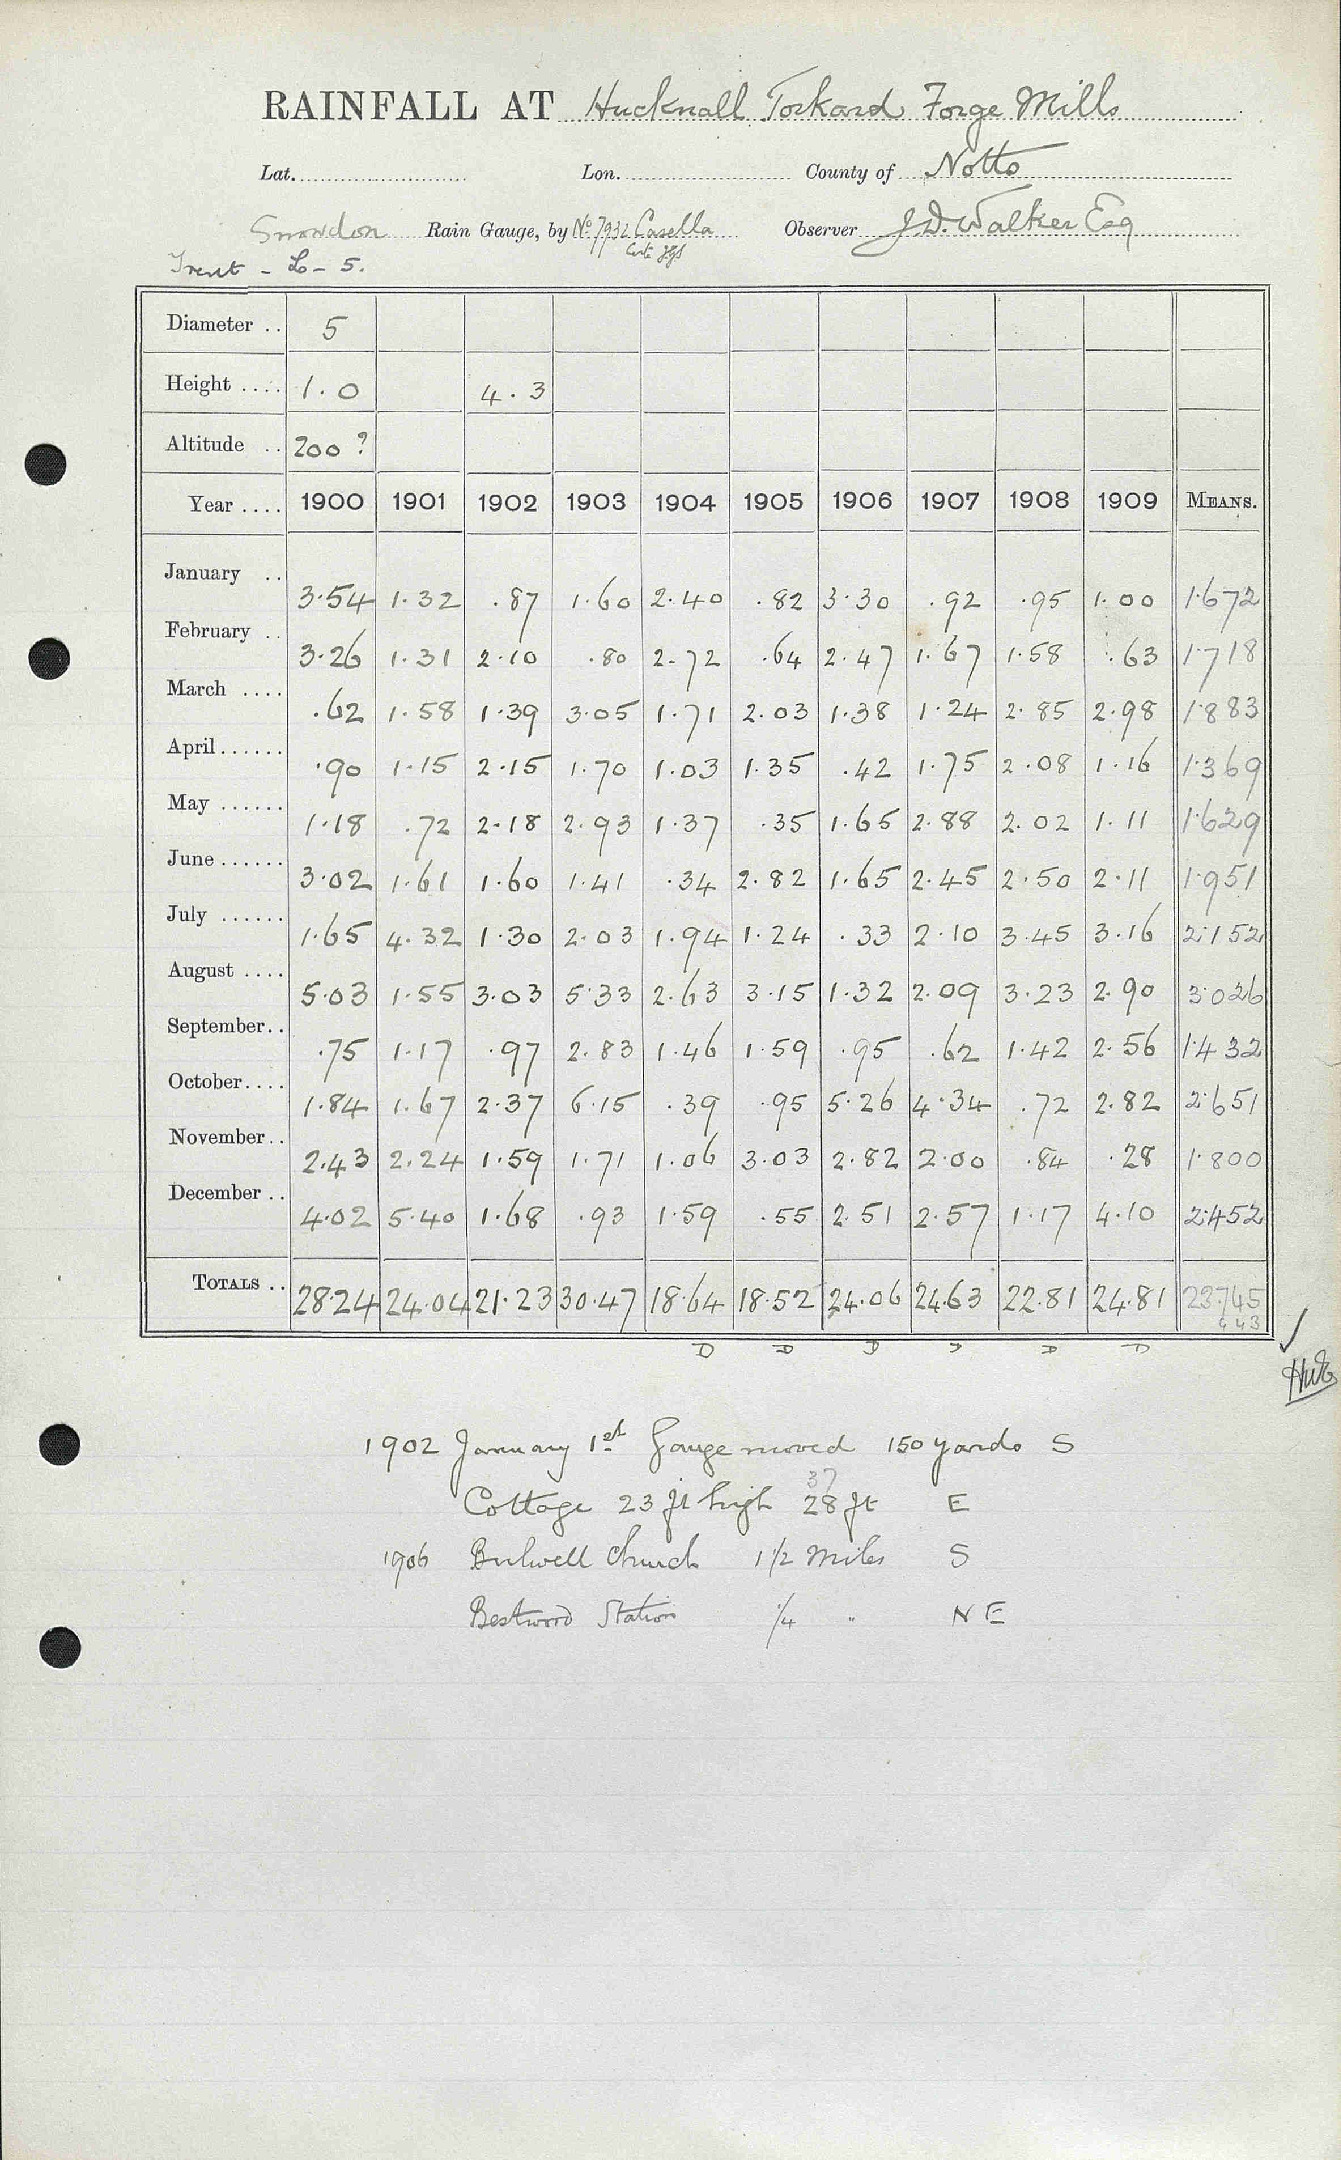 RAINFALL AT Hucknall Torkard Forge Mills
Lat. Lon. County of Notts
Snowdon Rain Gauge, by No 7932 Casella Observer J.D. Walker Esq
Trent - L - 5.
Diameter .. 5
Height .... 1.0 4.3
Altitude .. 200 ?
Year .... 1900 1901 1902 1903 1904 1905 1906 1907 1908 1909 MEANS.
January .. 3.54 1.32 .87 1.60 2.40 .82 3.30 .92 .95 1.00 1.672
February .. 3.26 1.31 2.10 .80 2.72 .64 2.47 1.67 1.58 .63 1.718
March .... .62 1.58 1.39 3.05 1.71 2.03 1.38 1.24 2.85 2.98 1.883
April...... .90 1.15 2.15 1.70 1.03 1.35 .42 1.75 2.08 1.16 1.369
May ...... 1.18 .72 2.18 2.93 1.37 .35 1.65 2.88 2.02 1.11 1.629
June ...... 3.02 1.61 1.60 1.41 .34 2.82 1.65 2.45 2.50 2.11 1.951
July ...... 1.65 4.32 1.30 2.03 1.94 1.24 .33 2.10 3.45 3.16 2.152
August .... 5.03 1.55 3.03 5.33 2.63 3.15 1.32 2.09 3.23 2.90 3.026
September.. .75 1.17 .97 2.83 1.46 1.59 .95 .62 1.42 2.56 1.432
October.... 1.84 1.67 2.37 6.15 .39 .95 5.26 4.34 .72 2.82 2.651
November.. 2.43 2.24 1.59 1.71 1.06 3.03 2.82 2.00 .84 .28 1.800
December .. 4.02 5.40 1.68 .93 1.59 .55 2.51 2.57 1.17 4.10 2.452
TOTALS .. 28.24 24.04 21.23 30.47 18.64 18.52 24.06 24.63 22.81 24.81 23.745
D D D D D D
1902 January 1st Gauge moved 150 yards S
37
Cottage 23 ft high 28 ft E
1906 Bulwell Church 1 1/2 Miles S
Bestwood Station 1/4 " N E